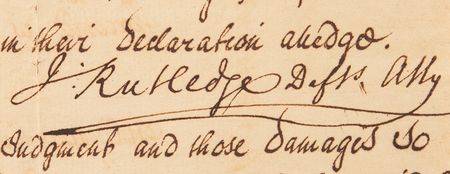 in their Declaration alledge.
J. Rutledge Defts. Atty
Judgment and those Damages So